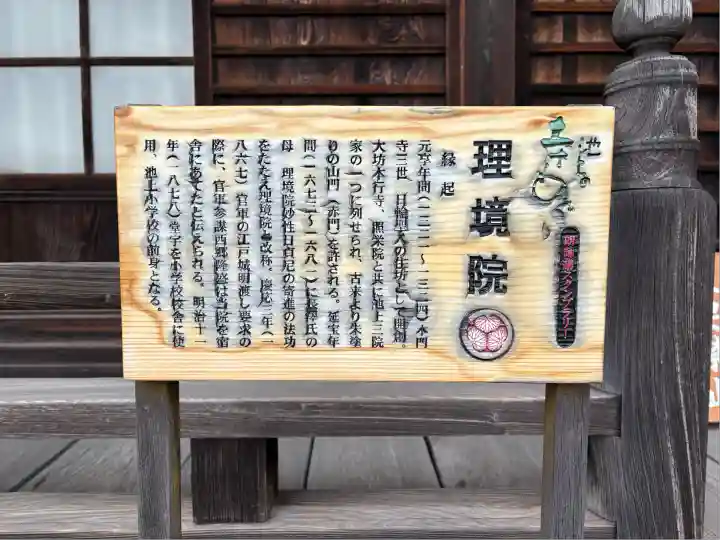 池上
寺めぐり
御朱印スタンプラリー
理境院
縁起
元亨年間（一三二一〜一三二四）本門
寺三世 日輪聖人の住坊として開創。
大坊本行寺、照栄院と共に池上三院
家の一つに列せられ、古来より朱塗
りの山門（赤門）を許される。延宝年
間（一六七三〜一六八一）に長 氏の
母 理境院妙性日貞尼の寄進の法功
をたたえ理境院と改称。慶応三年（一
八六七）官軍の江戸城明渡し要求の
際に、官軍参謀西郷隆盛は当院を宿
舎にあてたと伝えられる。明治十一
年（一八七八）堂宇を小学校校舎に使
用、池上小学校の前身となる。